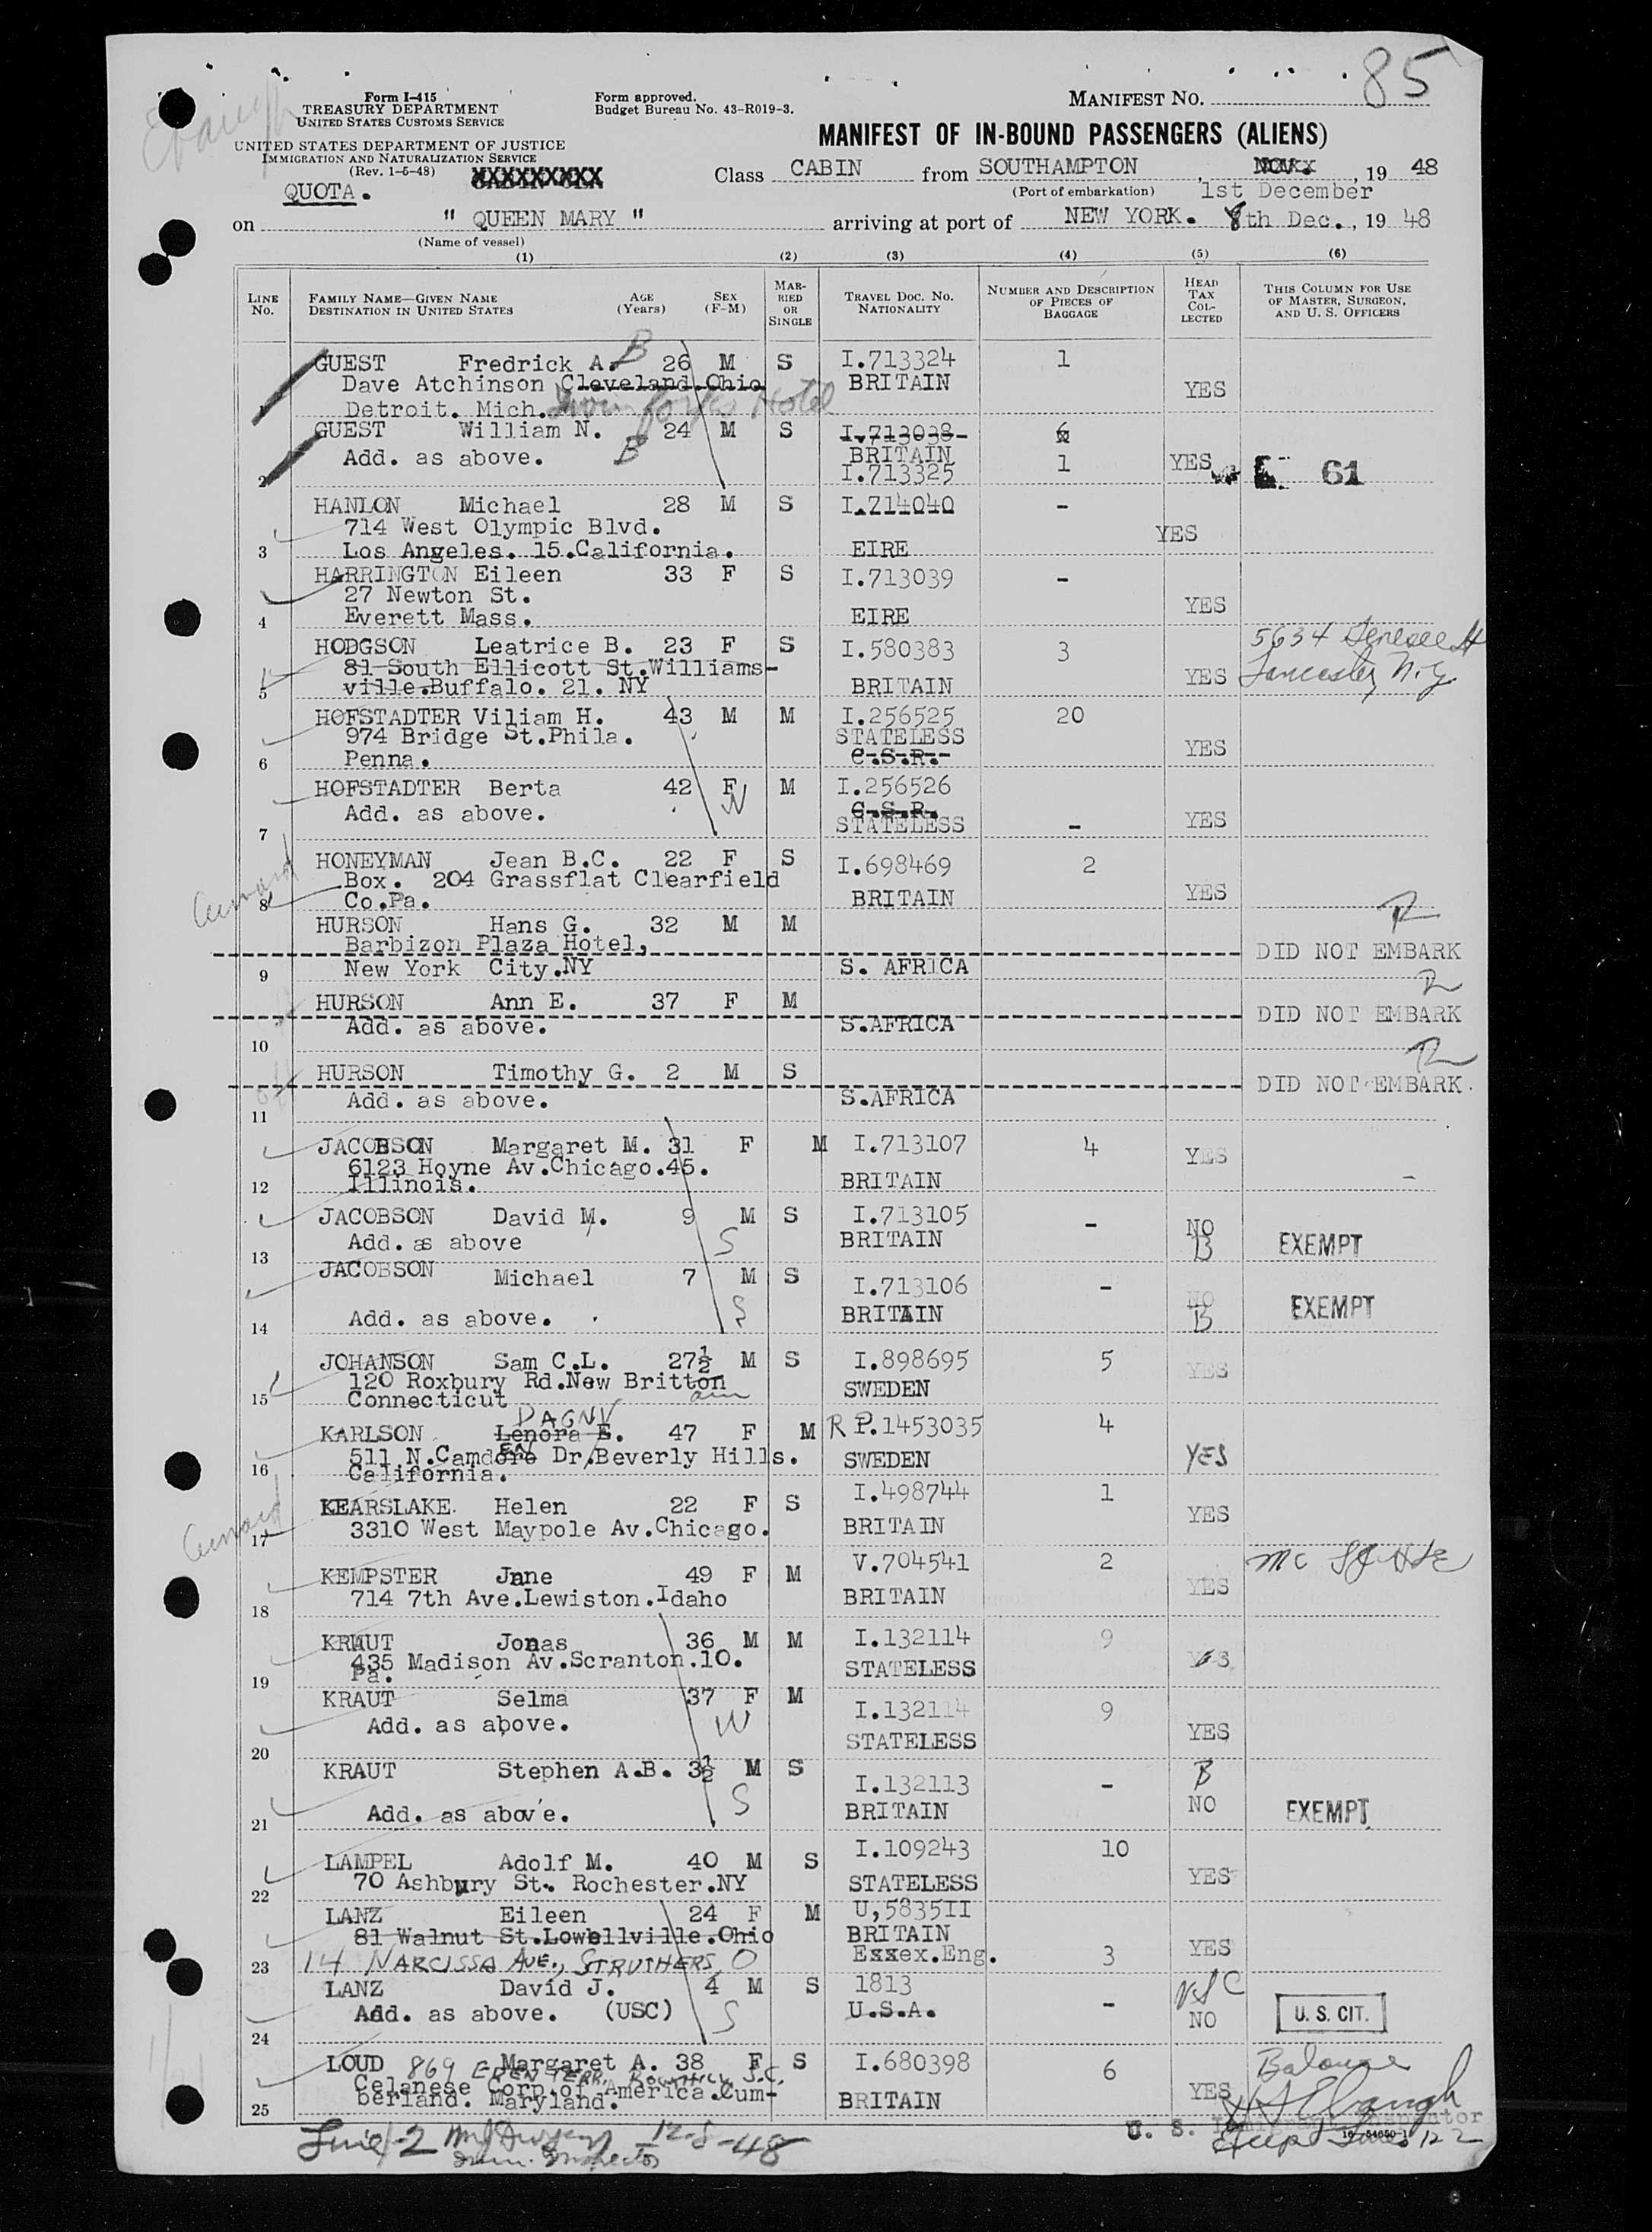 85
Form I-415
TREASURY DEPARTMENT
UNITED STATES CUSTOMS SERVICE
Form approved.
Budget Bureau No. 43-R019-3.
MANIFEST NO.
UNITED STATES DEPARTMENT OF JUSTICE
IMMIGRATION AND NATURALIZATION SERVICE
(Rev. 1-5-48)
MANIFEST OF IN-BOUND PASSENGERS (ALIENS)
QUOTA. XXXXXXXXX
Class CABIN from SOUTHAMPTON, NOV.X, 19 48
(Port of embarkation) 1st December
on " QUEEN MARY " arriving at port of NEW YORK. 8th Dec., 19 48
(Name of vessel)
(1) (2) (3) (4) (5) (6)
LINE No.
FAMILY NAME—GIVEN NAME
DESTINATION IN UNITED STATES
AGE (Years)
SEX (F-M)
MARRIED OR SINGLE
TRAVEL DOC. NO.
NATIONALITY
NUMBER AND DESCRIPTION OF PIECES OF BAGGAGE
HEAD TAX COLLECTED
THIS COLUMN FOR USE OF MASTER, SURGEON, AND U. S. OFFICERS
GUEST Fredrick A. B 26 M S I.713324 1
Dave Atchinson Cleveland.Ohio BRITAIN YES
Detroit. Mich. Hotel
GUEST William N. 24 M S I.713038- 6
2 Add. as above. B BRITAIN I.713325 1 YES 61
HANLON Michael 28 M S I.714040 -
714 West Olympic Blvd. YES
3 Los Angeles. 15.California. EIRE
HARRINGTON Eileen 33 F S I.713039 -
27 Newton St. YES
4 Everett Mass. EIRE
HODGSON Leatrice B. 23 F S I.580383 3 5634 Genesee St
81 South Ellicott St.Williams- YES Lancaster N.Y.
5 ville.Buffalo. 21. NY BRITAIN
HOFSTADTER Viliam H. 43 M M I.256525 20
974 Bridge St.Phila. STATELESS YES
6 Penna. C.S.R.-
HOFSTADTER Berta 42 F M I.256526
Add. as above. W C.S.R.
7 STATELESS - YES
HONEYMAN Jean B.C. 22 F S I.698469 2
Box. 204 Grassflat Clearfield YES
Cunard 8 Co.Pa. BRITAIN
HURSON Hans G. 32 M M
Barbizon Plaza Hotel, DID NOT EMBARK
9 New York City.NY S. AFRICA
HURSON Ann E. 37 F M DID NOT EMBARK
Add. as above. S.AFRICA
10
HURSON Timothy G. 2 M S DID NOT EMBARK.
Add. as above. S.AFRICA
11
JACOBSON Margaret M. 31 F M I.713107 4 YES
6123 Hoyne Av.Chicago.45.
12 Illinois. BRITAIN -
JACOBSON David M. 9 M S I.713105 - NO
13 Add. as above S BRITAIN B EXEMPT
JACOBSON Michael 7 M S I.713106 - NO
14 Add. as above. S BRITAIN B EXEMPT
JOHANSON Sam C.L. 27½ M S I.898695 5 YES
120 Roxbury Rd.New Britton SWEDEN
15 Connecticut ain
DAGNY
KARLSON Lenora E. 47 F M R P.1453035 4
511 N.Camdore EN Dr.Beverly Hills. SWEDEN YES
16 California.
KEARSLAKE. Helen 22 F S I.498744 1 YES
Cunard 17 3310 West Maypole Av.Chicago. BRITAIN
KEMPSTER Jane 49 F M V.704541 2 YES
18 714 7th Ave.Lewiston.Idaho BRITAIN
KRAUT Jonas 36 M M I.132114 9
435 Madison Av.Scranton.10. STATELESS
19 Pa.
KRAUT Selma 37 F M I.132114 9
20 Add. as above. W STATELESS YES
KRAUT Stephen A.B. 3½ M S I.132113 - B
21 Add. as above. S BRITAIN NO EXEMPT
LAMPEL Adolf M. 40 M S I.109243 10
22 70 Ashbury St. Rochester.NY STATELESS YES
LANZ Eileen 24 F M U,5835II
81 Walnut St.Lowellville.Ohio BRITAIN YES
23 14 NARCISSA AVE., STRUTHERS, O Exxex.Eng. 3
LANZ David J. 4 M S 1813 USC
Add. as above. (USC) S U.S.A. - NO U. S. CIT.
24
LOUD Margaret A. 38 F S I.680398 6 Balance
869 EDEN TERR. ROCKHILL S.C.
Celanese Corp.of America.Cum- YES
25 berland. Maryland. BRITAIN
Line 1-2 12-8-48
Imm. Inspector
U. S. Immigrant Inspector
16-54650-1